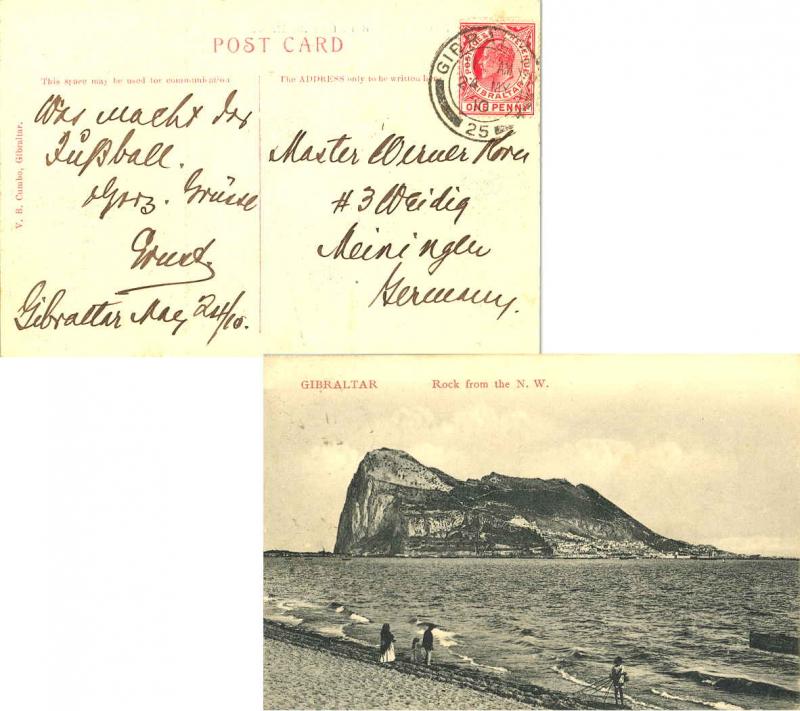 POST CARD
This space may be used for communication
The ADDRESS only to be written here
V. B. Cumbo, Gibraltar.
POSTAGE & REVENUE
GIBRALTAR
ONE PENNY
GIBR
MY
10
25
Was macht das
Fußball.
Herz. Grüsse
Ernst.
Gibraltar May 24/10.
Master Werner
#3 Weidig
Meiningen
Germany.
GIBRALTAR Rock from the N. W.